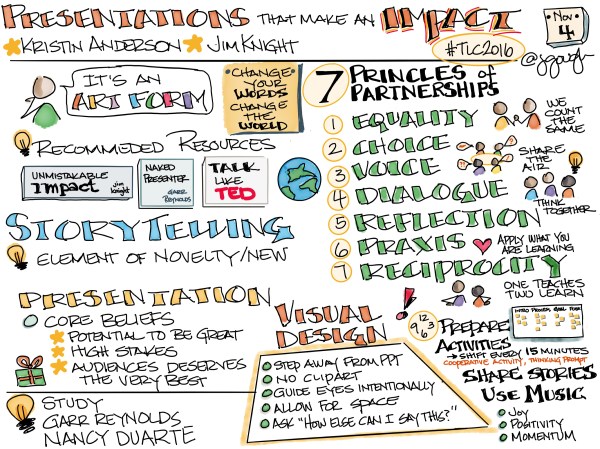 PRESENTATIONS THAT MAKE AN IMPACT
Nov 4
KRISTIN ANDERSON JIM KNIGHT
#TLC2016
@jgough
IT'S AN
ART FORM
CHANGE
YOUR
WORDS
CHANGE
THE
WORLD
RECOMMEDED RESOURCES
UNMISTAKABLE
Impact
Jim Knight
NAKED
PRESENTER
GARR
REYNOLDS
TALK
LIKE
TED
STORYTELLING
ELEMENT OF NOVELTY/NEW
7 PRINCLES of
PARTNERSHIPS
1 EQUALITY
WE
COUNT
THE
SAME
2 CHOICE
3 VOICE
SHARE
THE
AIR
4 DIALOGUE
THINK
TOGETHER
5 REFLECTION
6 PRAXIS
APPLY WHAT YOU
ARE LEARNING
7 RECIPROCITY
ONE TEACHES
TWO LEARN
PRESENTATION
CORE BELIEFS
POTENTIAL TO BE GREAT
HIGH STAKES
AUDIENCES DESERVES
THE VERY BEST
STUDY
GARR REYNOLDS
NANCY DUARTE
VISUAL
DESIGN
STEP AWAY FROM PPT
NO CLIPART
GUIDE EYES INTENTIONALLY
ALLOW FOR SPACE
ASK "HOW ELSE CAN I SAY THIS?"
!
12
9 3
6
PREPARE
ACTIVITIES
→ SHIFT EVERY 15 MINUTES
COOPERATIVE ACTIVITY, THINKING PROMPT
SHARE STORIES
USE MUSIC
JOY
POSITIVITY
MOMENTUM